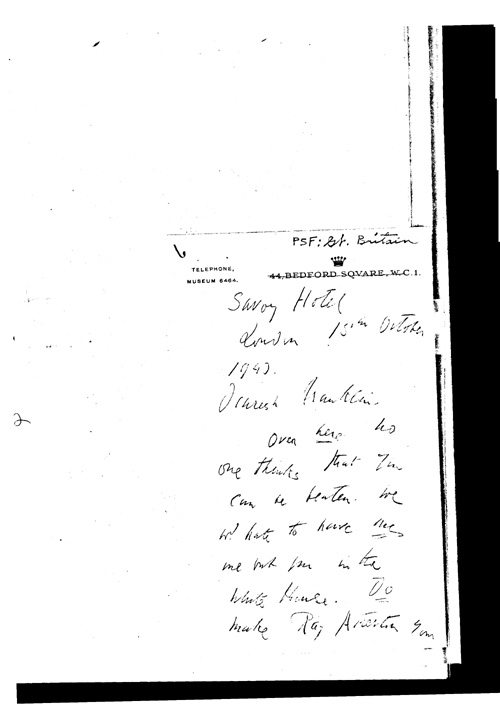 6
PSF: Gt. Britain
TELEPHONE,
MUSEUM 6464.
44, BEDFORD SQVARE, W.C.1.
Savoy Hotel
London 15th October
1943.
Dearest Franklin.
Over here no
one thinks that you
can be beaten. We
wd hate to have
one but you in the
White House. Do
make Ray Atherton your
2